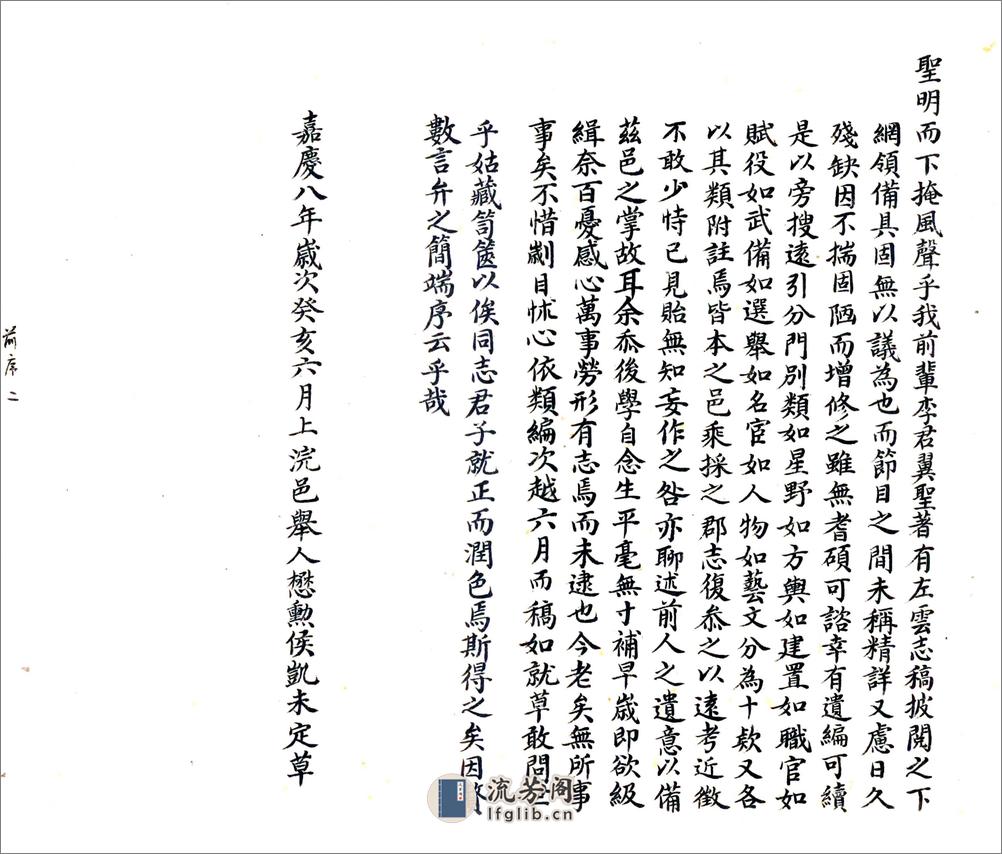 聖明而下掩風聲乎我前輩李君翼聖著有左雲志稿披閱之下
網領備具固無以議為也而節目之間未稱精詳又慮日久
殘缺因不揣固陋而增修之雖無耆碩可諮幸有遺編可續
是以旁搜遠引分門別類如星野如方輿如建置如職官如
賦役如武備如選舉如名宦如人物如藝文分為十欵又各
以其類附註焉皆本之邑乘採之郡志復叅之以遠考近徵
不敢少恃已見貽無知妄作之咎亦聊述前人之遺意以備
茲邑之掌故耳余忝後學自念生平毫無寸補早歲即欲級
緝奈百憂感心萬事勞形有志焉而未逮也今老矣無所事
事矣不惜劌目怵心依類編次越六月而稿如就草敢問
乎姑藏笥篋以俟同志君子就正而潤色焉斯得之矣因
數言弁之簡端序云乎哉
嘉慶八年歲次癸亥六月上浣邑舉人懋勲侯凱未定草
前序二
流芳閣
lfglib.cn